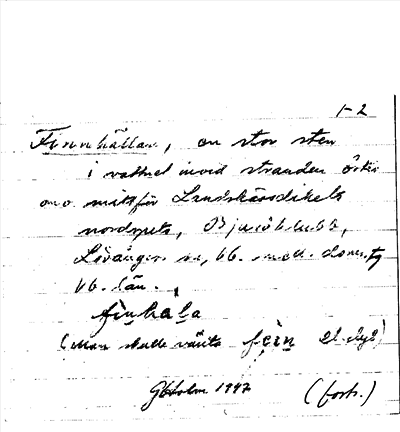 1-2
Finnhällan, en stor sten
i vattnet invid stranden öster
om o. mitt för Landskärsdikets
nordspets, Bjuröklubb,
Lövångers sn, Vb. med. doms.
Vb. län.
finhala
(Man skulle vänta fein el. dyl.)
Gösta Holm 1947 (forts.)